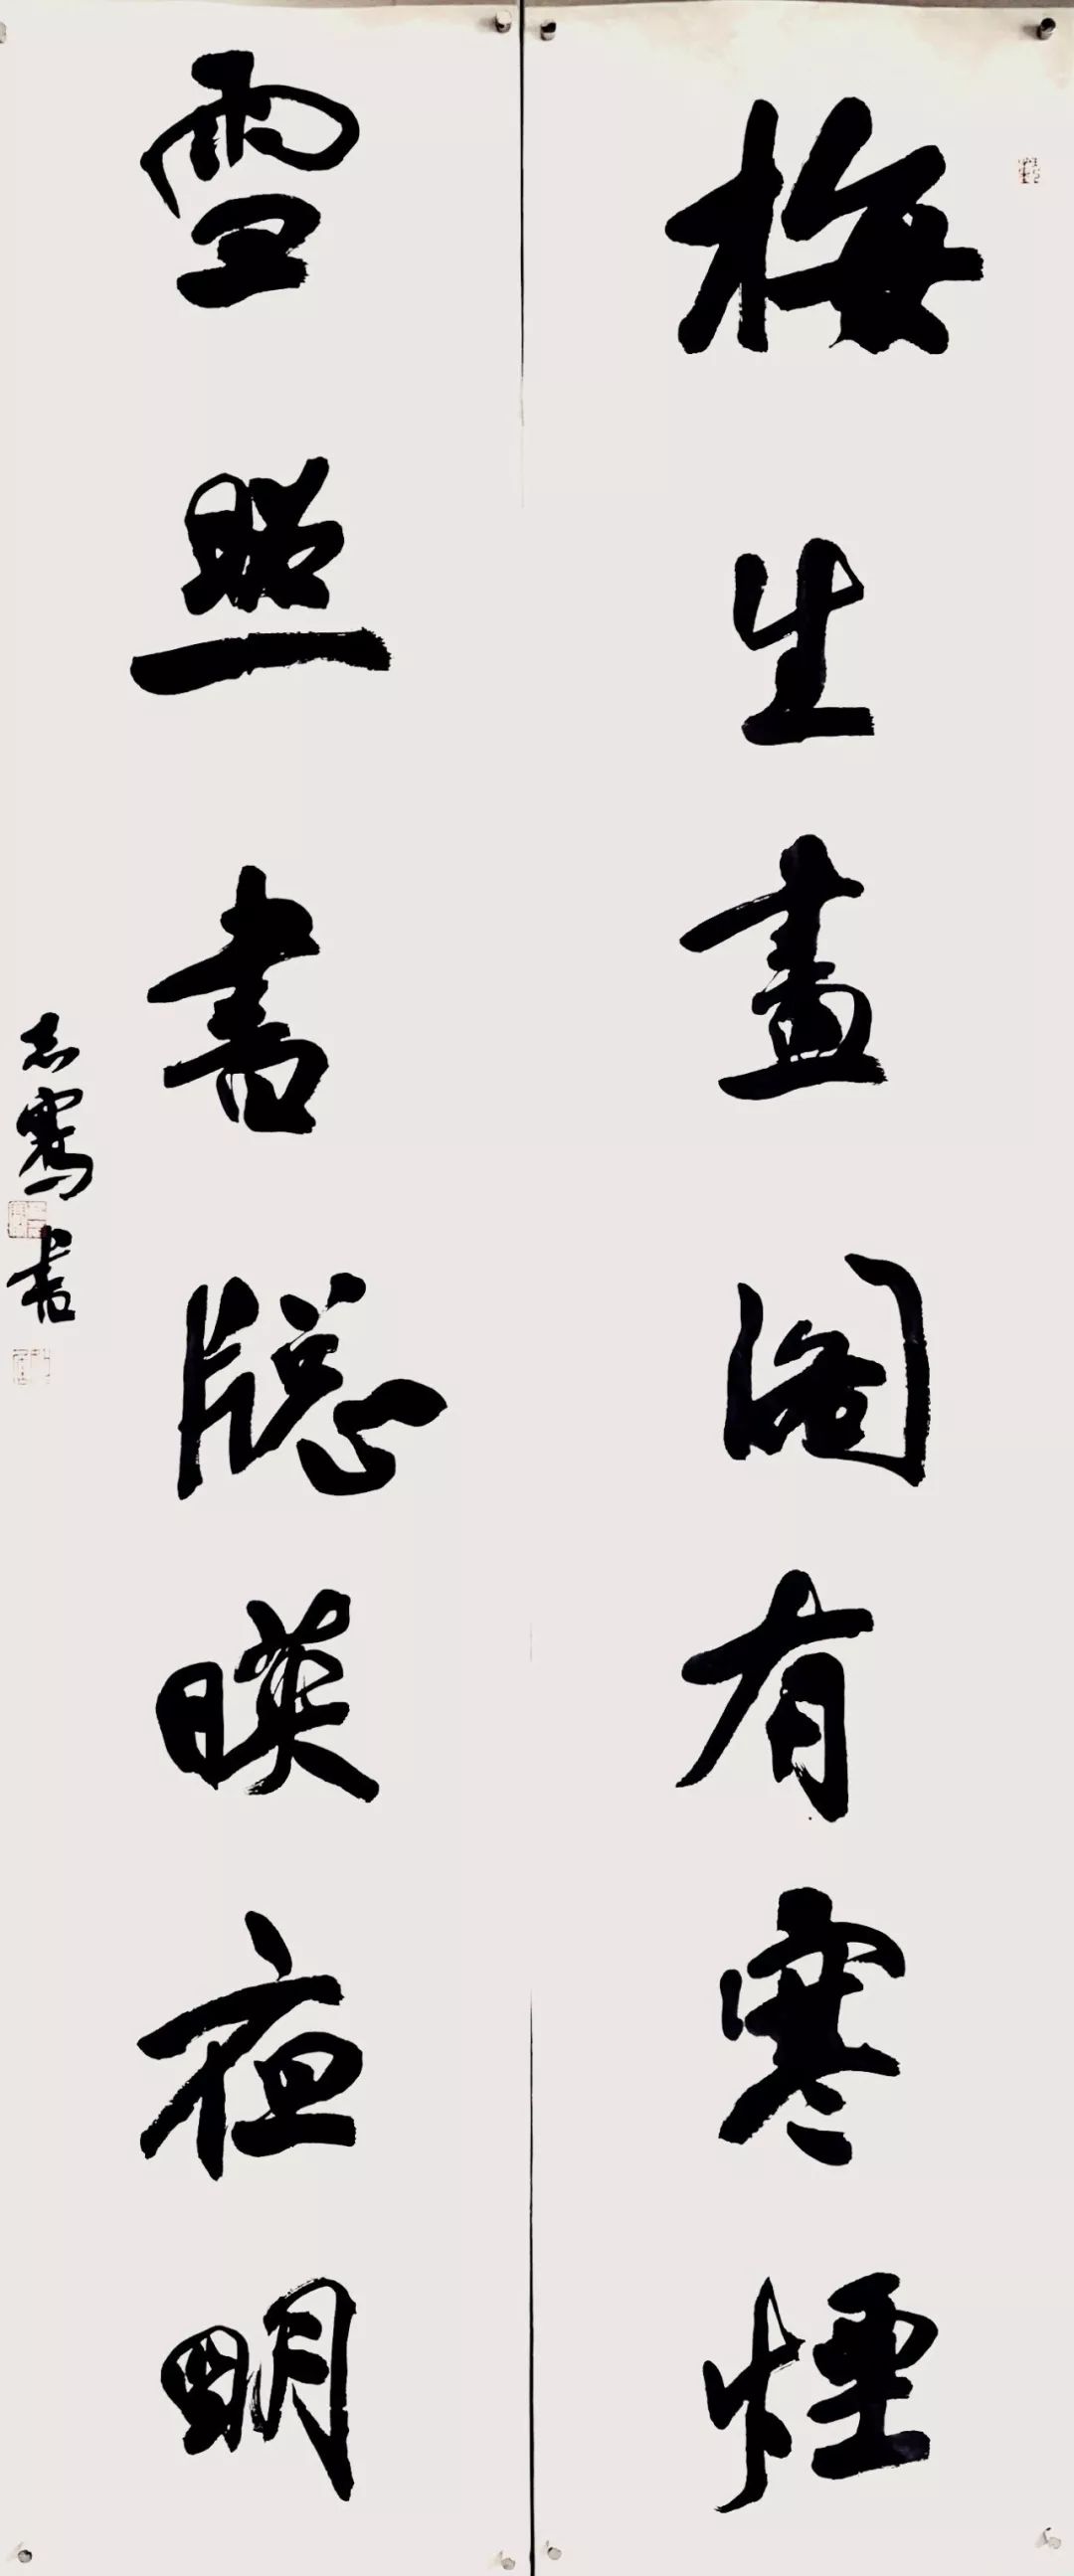 梅生畫閣有寒煙
雪照書牕暎夜明
志騫書